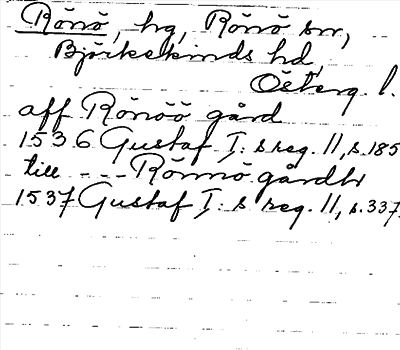 Rönö, hg, Rönö sn,
Björkekinds hd,
Österg. l.
aff Rönöö gård
1536 Gustaf I: s reg. 11, s. 185
till --- Rönnö gårdh
1537 Gustaf I: s reg. 11, s. 337.